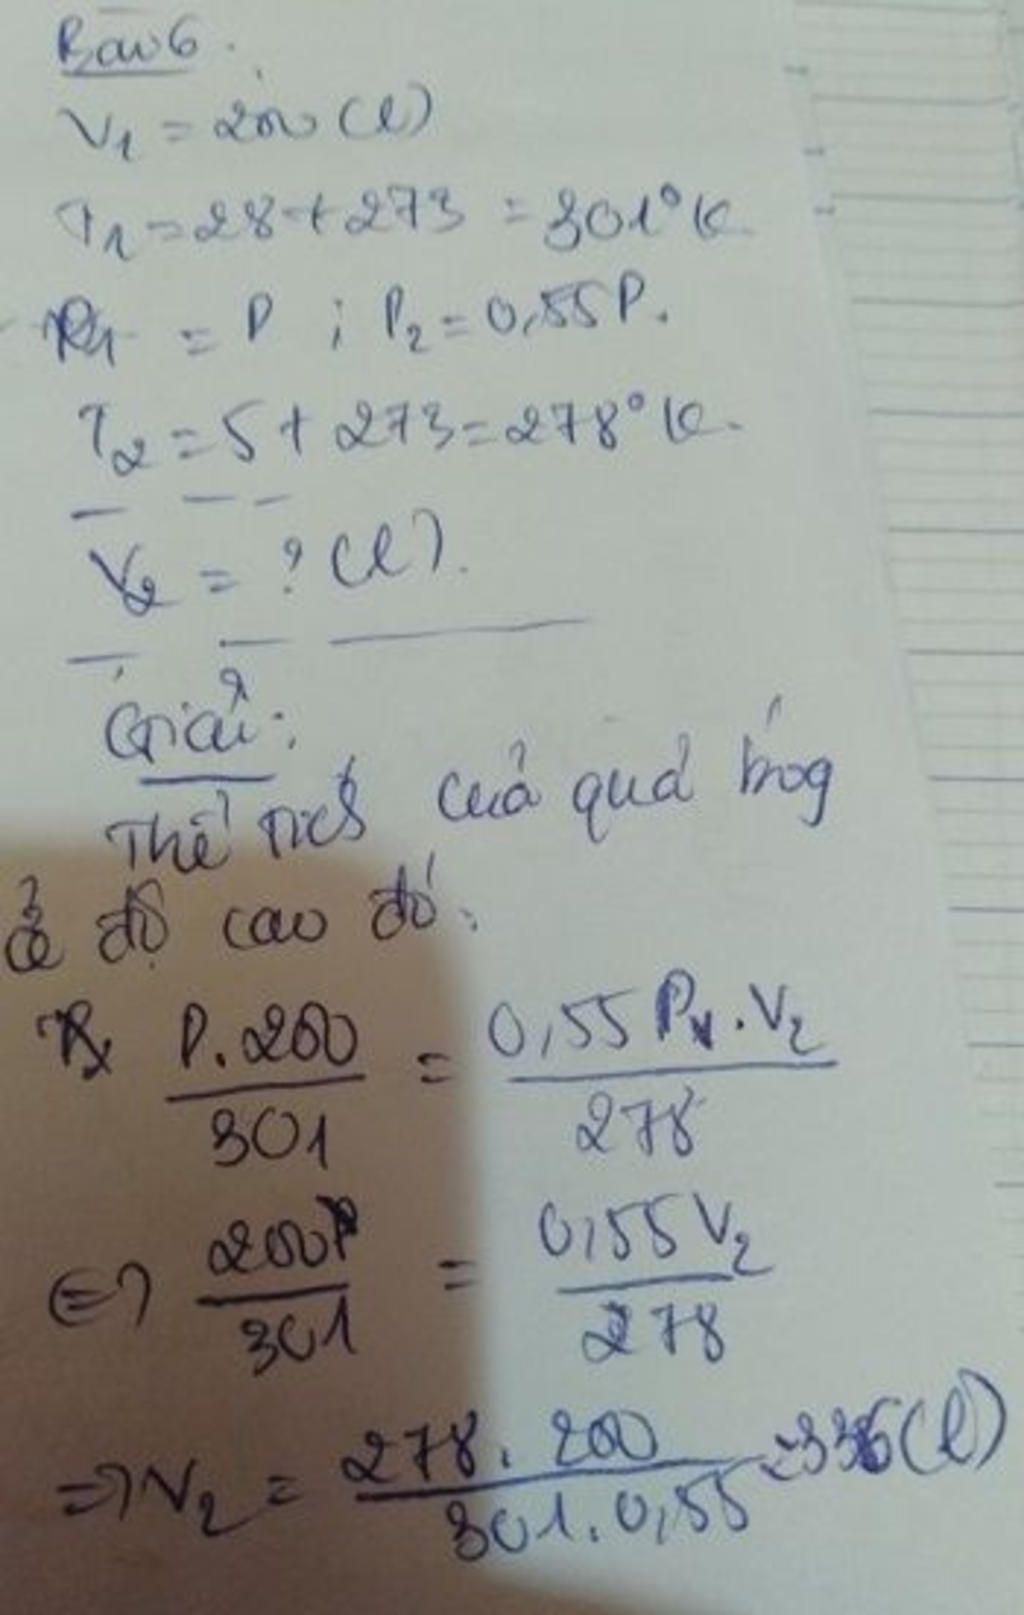 Bài 6.
V₁ = 200 (l)
T₁ = 28 + 273 = 301°K
P₁ = P ; P₂ = 0,55P.
T₂ = 5 + 273 = 278°K.
V₂ = ? (l).
Giải:
Thể tích của quả bóg
ở độ cao đó:
P.200 / 301 = 0,55 P₁.V₂ / 278
⇔ 200P / 301 = 0,55V₂ / 278
⇒ V₂ = 278.200 / 301.0,55 = 336 (l)